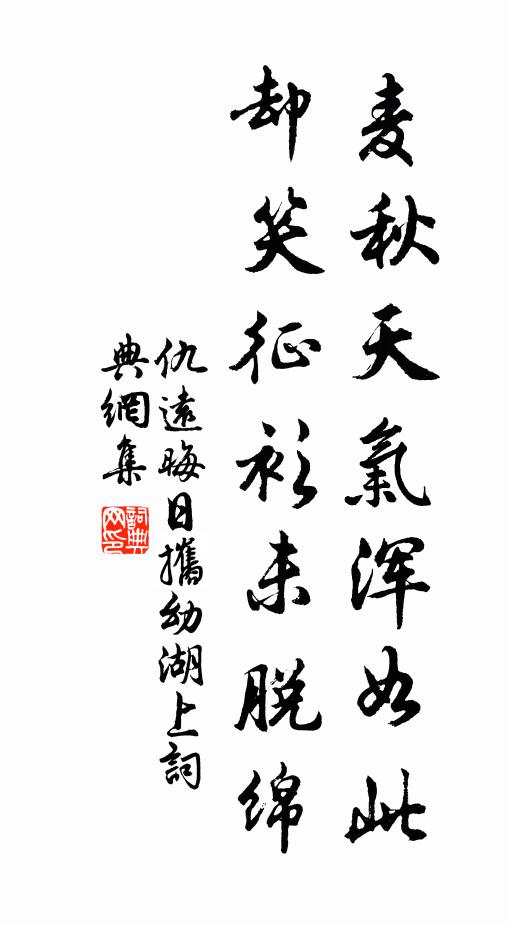 麦秋天氣渾如此
却笑征衫未脱綿
仇遠晦日攜幼湖上詞
典網集
詞典網印